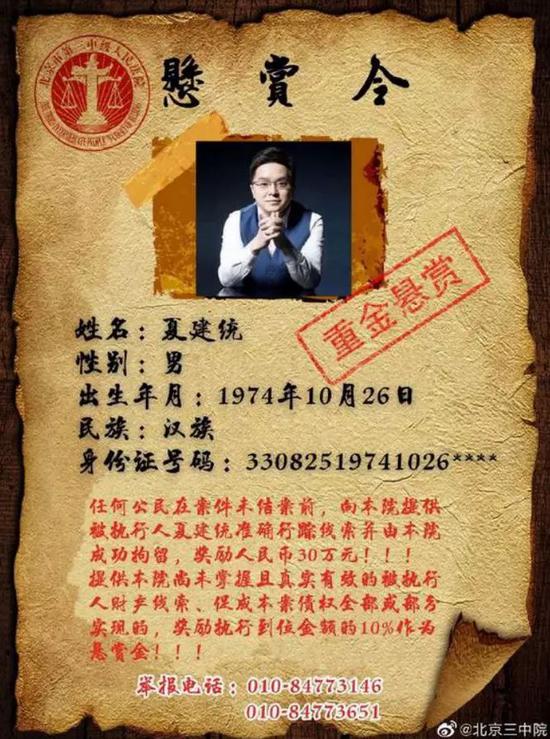 北京市第三中级人民法院
懸賞令
重金悬赏
姓名：夏建统
性别：男
出生年月：1974年10月26日
民族：汉族
身份证号码：33082519741026****
任何公民在案件未结案前，向本院提供
被执行人夏建统准确行踪线索并由本院
成功拘留，奖励人民币30万元！！！
提供本院尚未掌握且真实有效的被执行
人财产线索、促成本案债权全部或部分
实现的，奖励执行到位金额的10%作为
悬赏金！！！
举报电话：010-84773146
010-84773651
@北京三中院